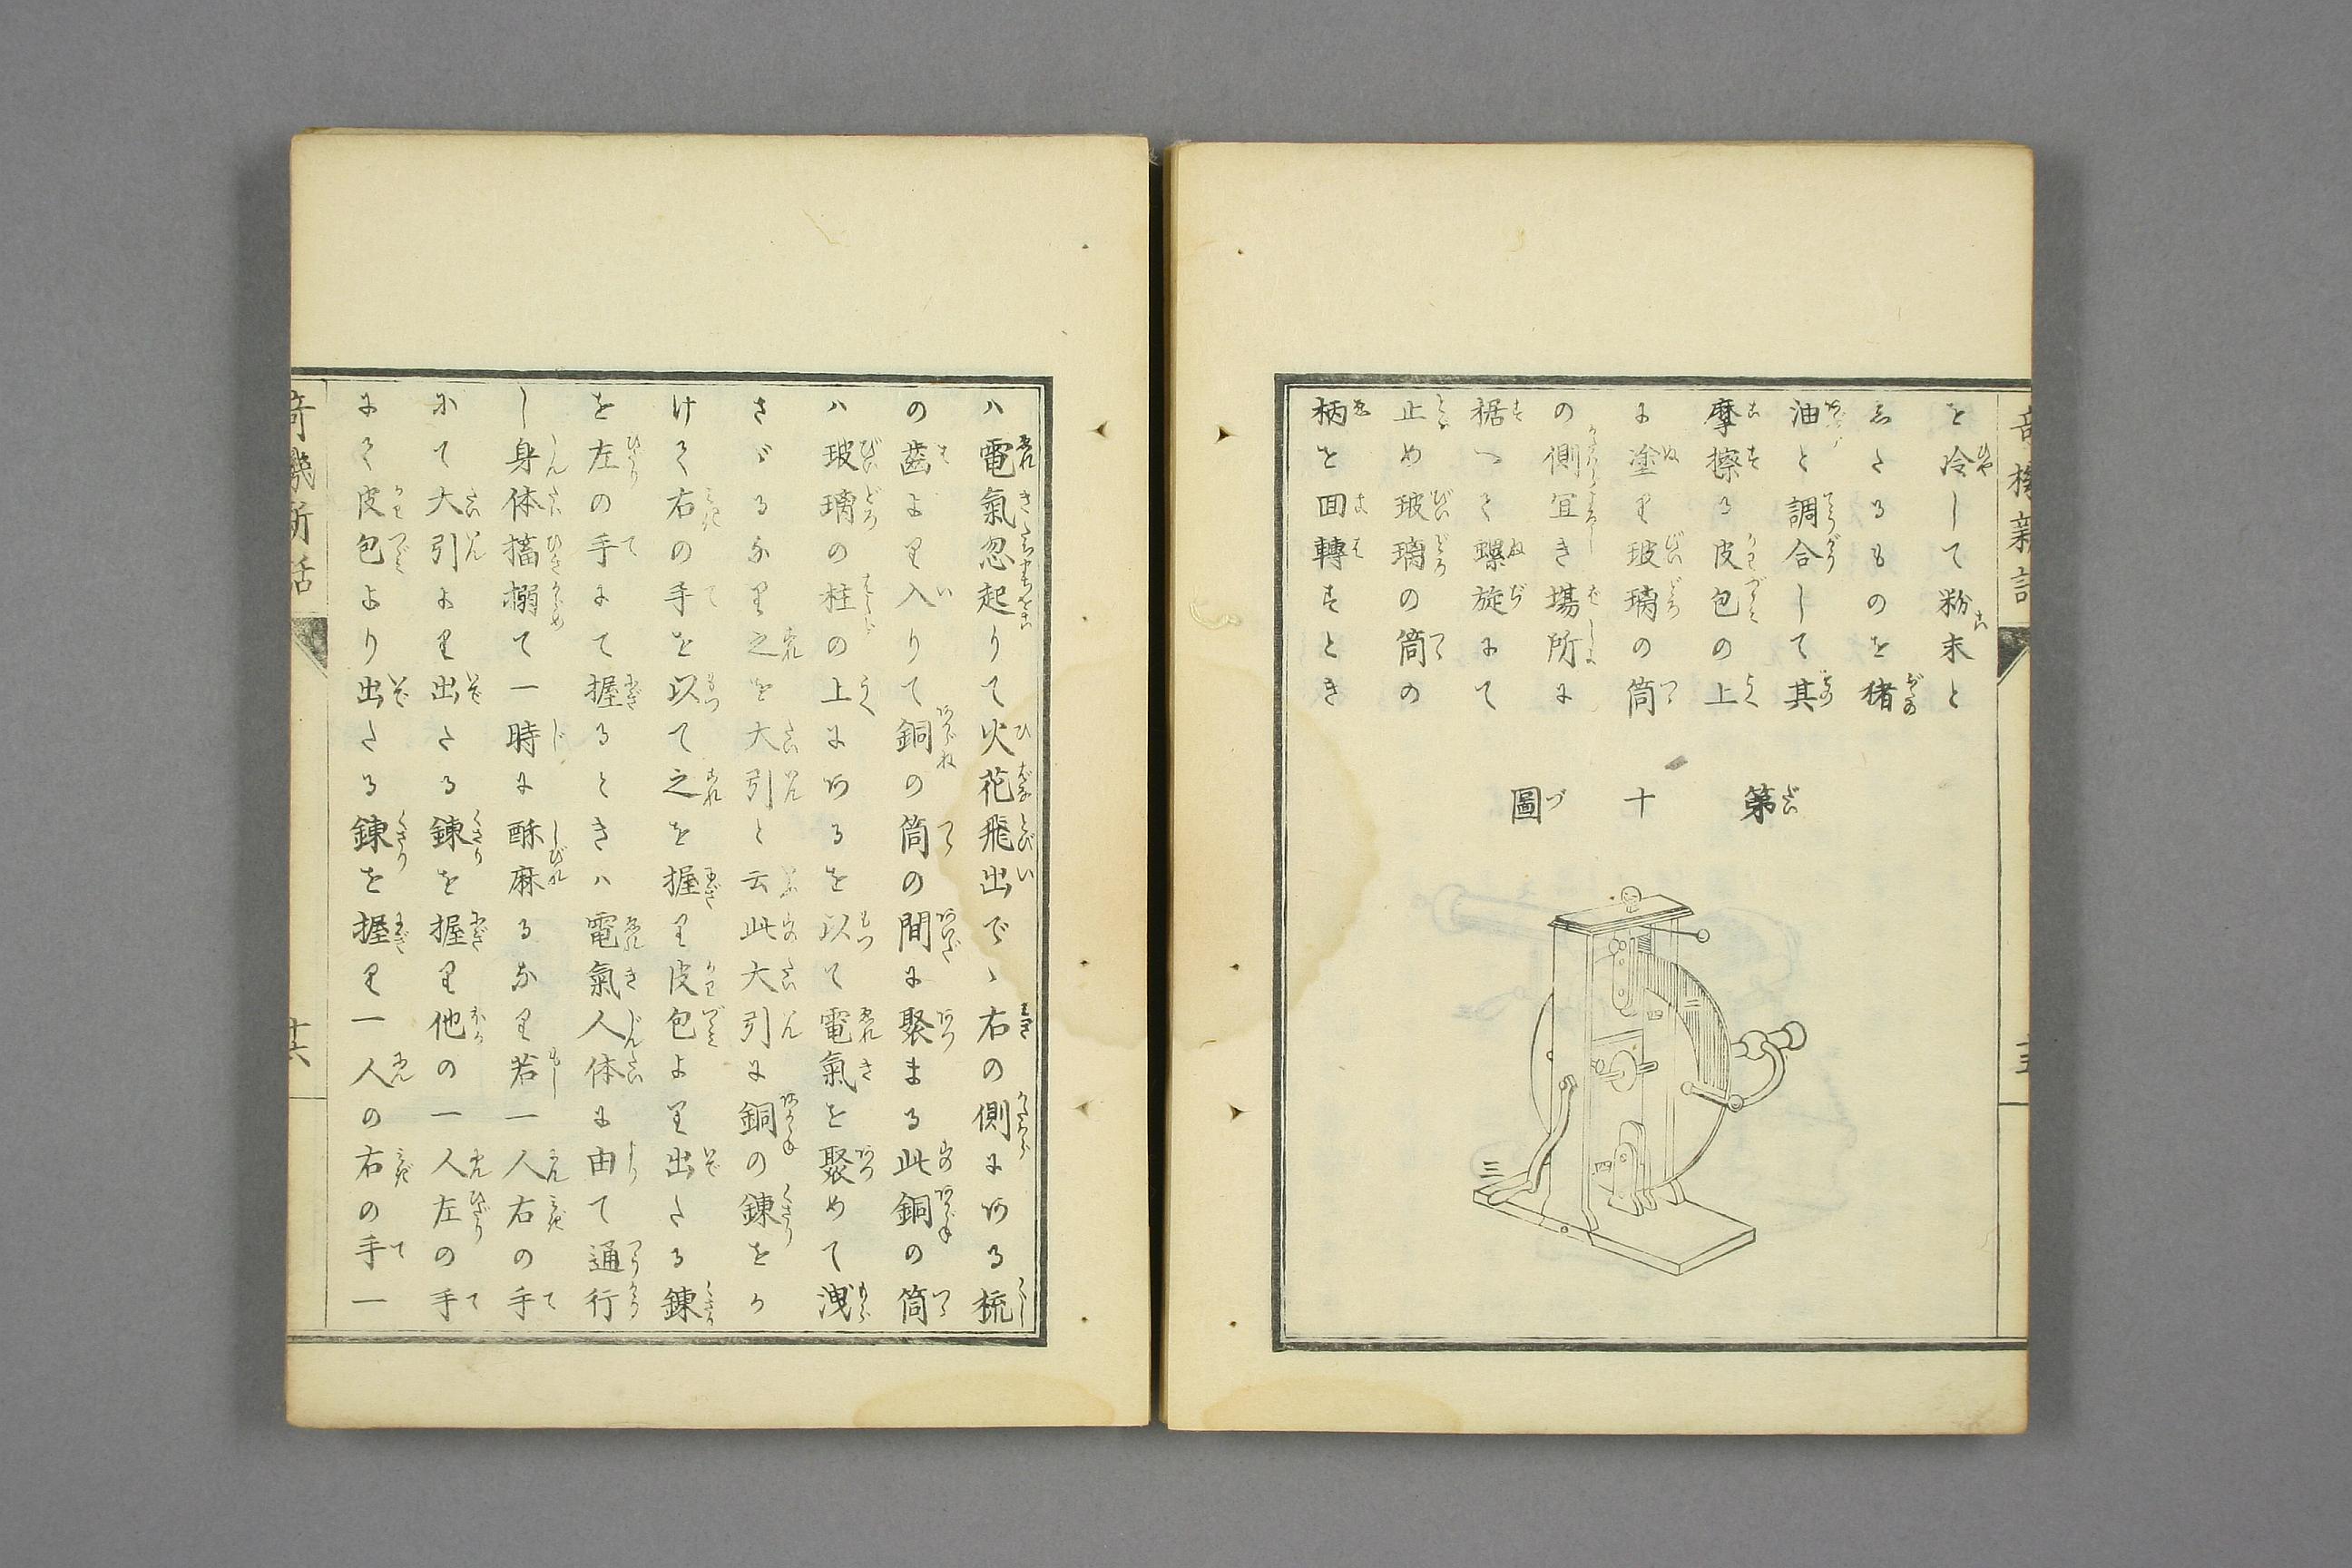 を冷して粉末と
志たるものを猪
油と調合して其
摩擦る皮包の上
に塗り玻璃の筒
の側冝き塲所に
裾つて螺旋にて
止め玻璃の筒の
柄を回轉すとき
第十圖
三
ハ電氣忽起りて火花飛出で、右の側にある梳
の齒より入りて銅の筒の間に聚まる此銅の筒
ハ玻璃の柱の上にあるを以て電氣を聚めて洩
さゞるなり之を大引と云此大引に銅の鍊をか
けて右の手を以て之を握り皮包より出たる鍊
を左の手にて握るときハ電氣人体に由て通行
し身体搐搦て一時に酥麻るなり若一人右の手
にて大引より出たる鍊を握り他の一人左の手
にて皮包より出たる鍊を握り一人の右の手一
奇機新話
十六